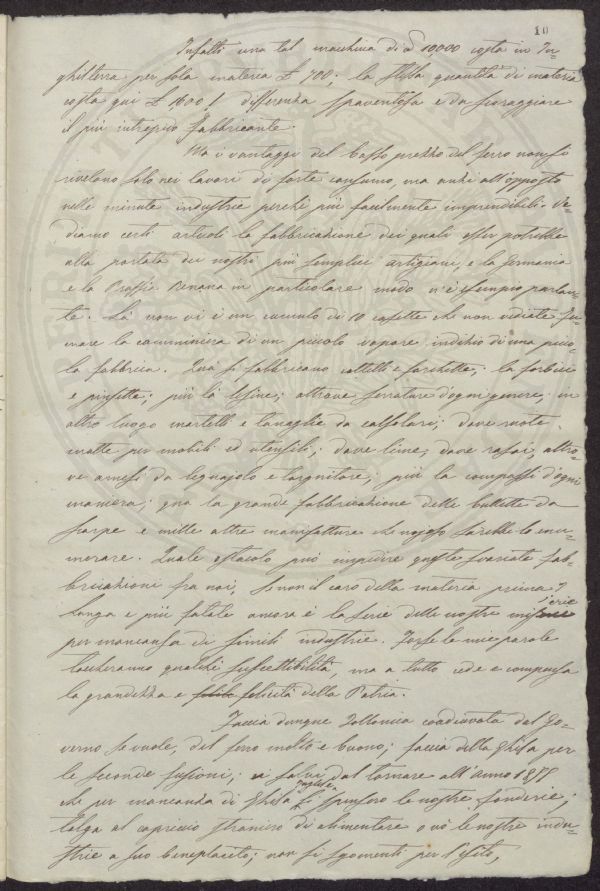 10
Infatti una tal macchina di 10000 costa in In-
ghilterra per sola materia £ 700; la stessa quantità di materia
costa qui £ 1600! differenza spaventosa e da scoraggiare
il più intrepido fabbricante.
Ma i vantaggi del basso prezzo del ferro non si
rivelano solo nei lavori di forte consumo, ma anzi all'opposto
nelle minute industrie perchè più facilmente imprendibili. Ve-
diamo certi articoli la fabbricazione dei quali esser potrebbe
alla portata dei nostri più semplici artigiani, e la Germania
e la Prussia Renana in particolare modo n'è esempio parlan-
te. Là non vi è un cumulo di 10 casette che non vediate fu-
mare la cimminiera di un piccolo vapore indizio di una picco-
la fabbrica. Quà si fabbricano coltelli e forchette; là forbici
e pinzette; più là lesine; altrove serrature d'ogni genere; in
altro luogo martelli e tanaglie da calzolari; dove ruote
matte per mobili ed utensili; dove lime, dove rasoi, altro-
ve arnesi da legnajolo e torgnitore; più là compassi d'ogni
maniera; qua la grande fabbricazione delle bullette da
scarpe e mille altre manifatture che nojoso sarebbe lo enu-
merare. Quale ostacolo può impedire queste svariate fab-
bricazioni fra noi, se non il caro della materia prima?
Lunga e più fatale ancora è la serie delle nostre miserie
per mancanza di simili industrie. Forse le mie parole
toccheranno qualche suscettibilità, ma a tutto cede e compensa
la grandezza e felicità della Patria.
Faccia dunque Follonica coadiuvata dal Go-
verno se vuole, del ferro molto e buono; faccia della Ghisa per
le seconde fusioni; ci salvi dal tornare all'anno 1875
che per mancanza di Ghisa Inglese si spensero le nostre fonderie;
tolga al capriccio straniero di alimentare o nò le nostre indu-
strie a suo beneplacito; non si sgomenti per l'esito,